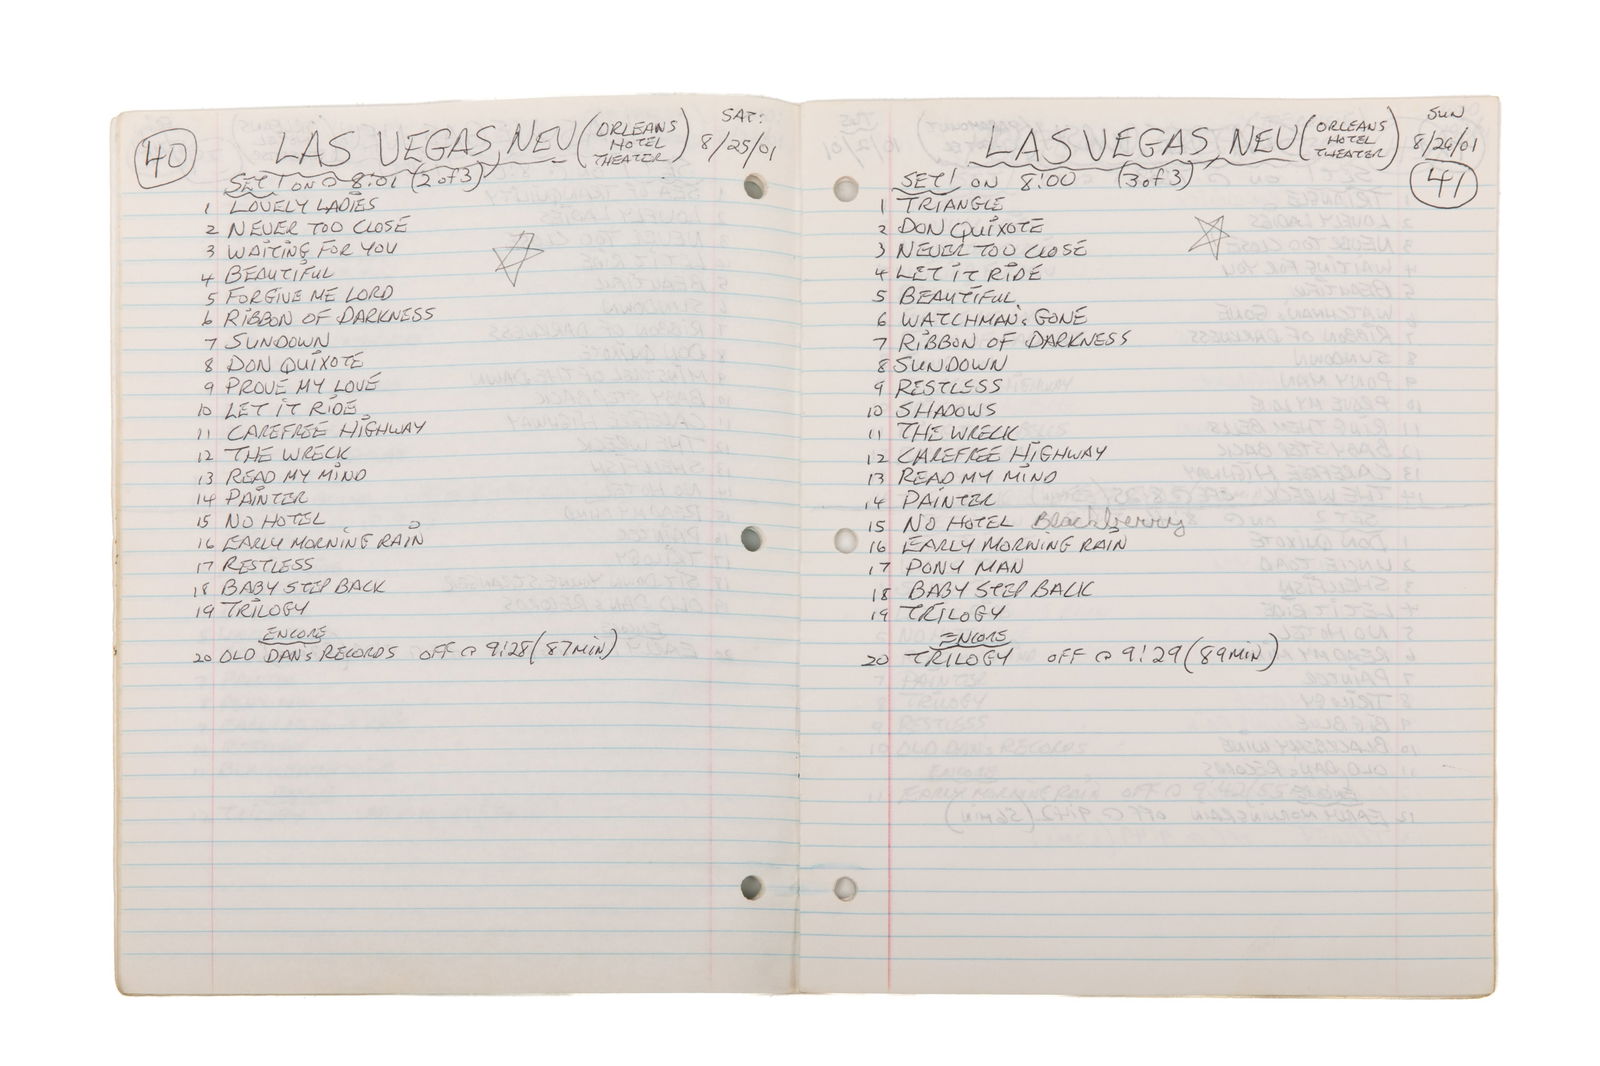 40
LAS VEGAS, NEV (ORLEANS HOTEL THEATER)
SAT:
8/25/01
SET 1 ON @ 8:01 (2 of 3)
1 LOVELY LADIES
2 NEVER TOO CLOSE
3 WAITING FOR YOU
4 BEAUTIFUL
5 FORGIVE ME LORD
6 RIBBON OF DARKNESS
7 SUNDOWN
8 DON QUIXOTE
9 PROVE MY LOVE
10 LET IT RIDE
11 CAREFREE HIGHWAY
12 THE WRECK
13 READ MY MIND
14 PAINTER
15 NO HOTEL
16 EARLY MORNING RAIN
17 RESTLESS
18 BABY STEP BACK
19 TRILOGY
ENCORE
20 OLD DAN'S RECORDS OFF @ 9:28 (87 MIN)
LAS VEGAS, NEV (ORLEANS HOTEL THEATER)
SUN
8/26/01
41
SET 1 ON 8:00 (3 of 3)
1 TRIANGLE
2 DON QUIXOTE
3 NEVER TOO CLOSE
4 LET IT RIDE
5 BEAUTIFUL
6 WATCHMAN'S GONE
7 RIBBON OF DARKNESS
8 SUNDOWN
9 RESTLESS
10 SHADOWS
11 THE WRECK
12 CAREFREE HIGHWAY
13 READ MY MIND
14 PAINTER
15 NO HOTEL Blackberry
16 EARLY MORNING RAIN
17 PONY MAN
18 BABY STEP BACK
19 TRILOGY
ENCORE
20 TRILOGY OFF @ 9:29 (89 MIN)